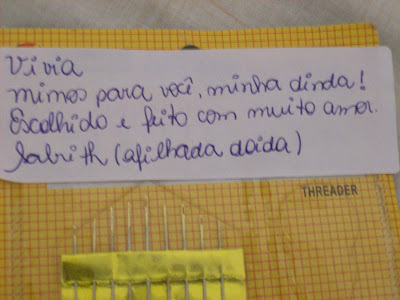 Vivia
mimos para você, minha dinda!
Escolhido e feito com muito amor.
Sabrith (afilhada doida)
THREADER